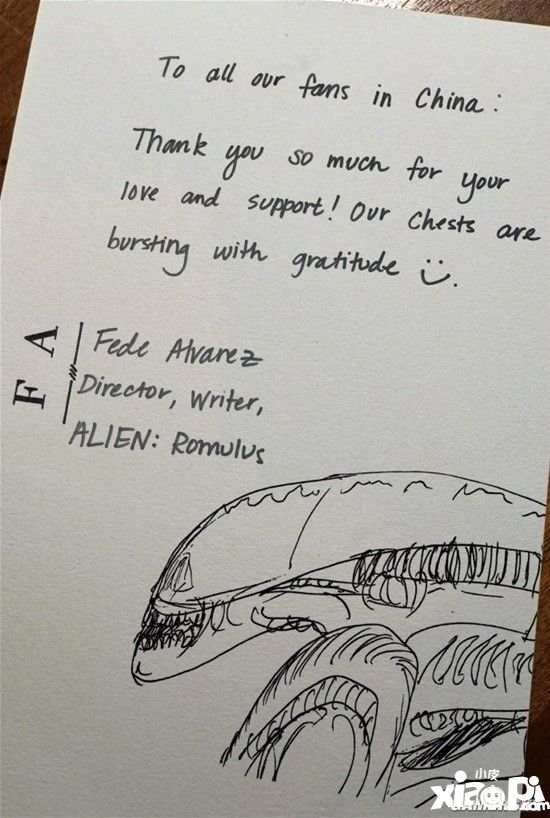 To all our fans in China:
Thank you so much for your
love and support! Our Chests are
bursting with gratitude
F A
Fede Alvarez
Director, Writer,
ALIEN: Romulus
小皮
xiaopi